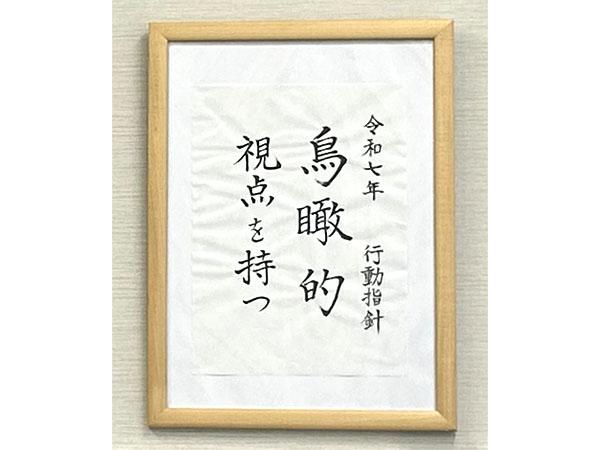 令和七年　行動指針
鳥瞰的
視点を持つ